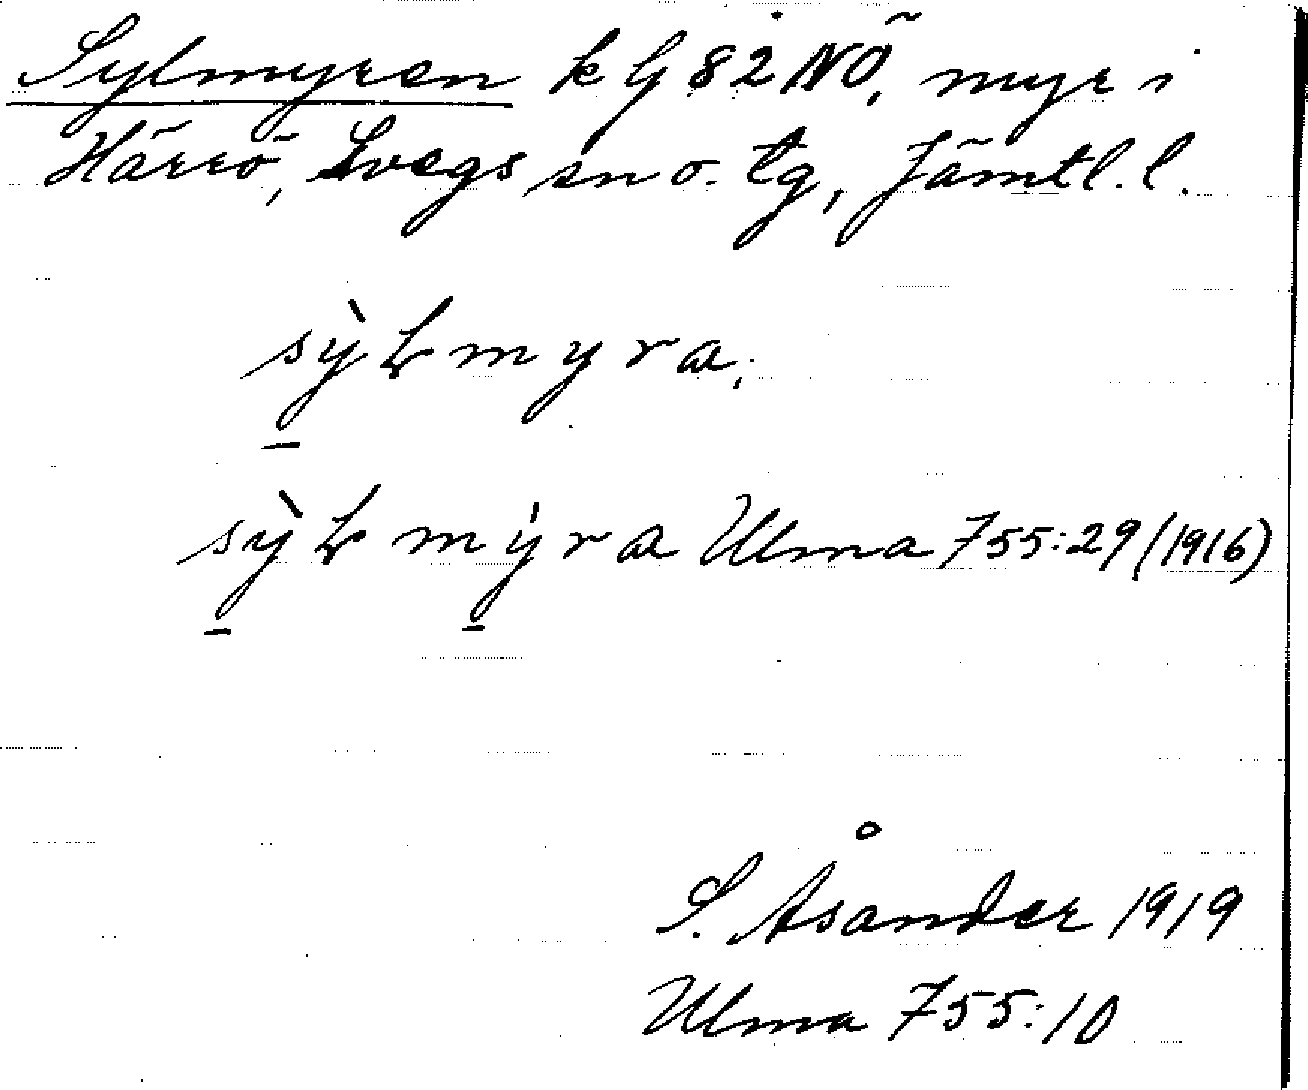 Sylmyren k G 82 NÖ, myr i
Härrö, Svegs sn o. tg, Jämtl. l.
sỳƚmyra,
sỳƚmy̍ra Ulma 755:29 (1916)
S. Åsander 1919
Ulma 755:10